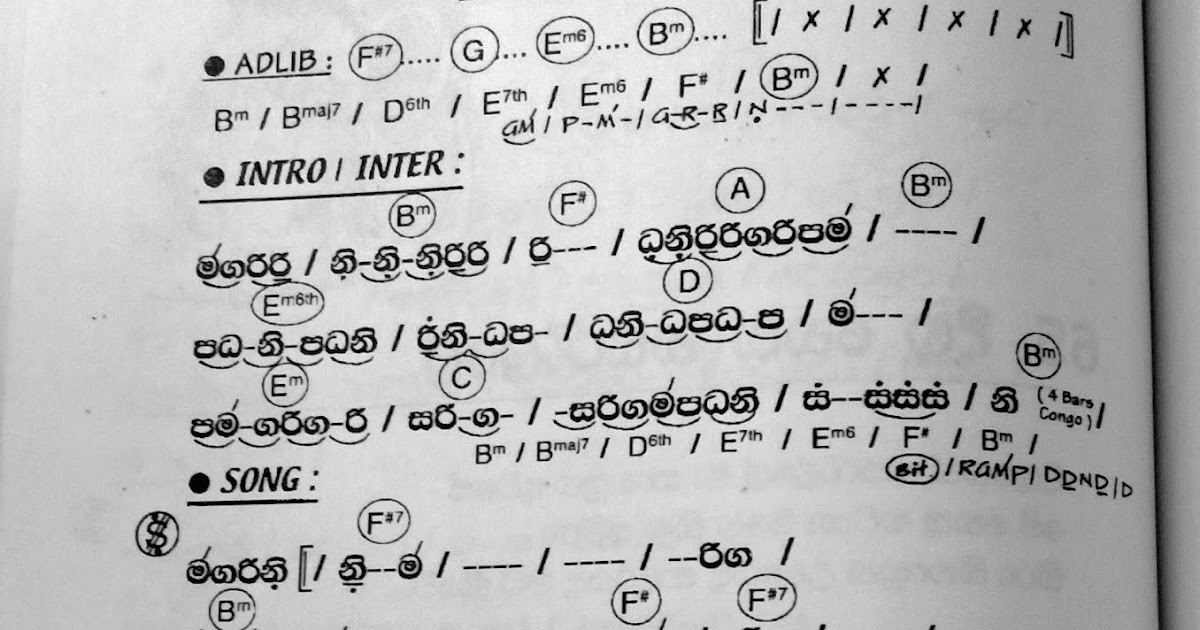 ● ADLIB : F#7..... G.... Em6.... Bm.... [/ x / x / x / x /]
Bm / Bmaj7 / D6th / E7th / Em6 / F# / Bm / x /
GḾ / P-Ḿ-/ G-R-R / Ṇ ---- / ---- /
● INTRO / INTER :
Bm F# A Bm
ම́ගරිරි / නි̣-නි̣-නි̣රිරි / රි--- / ධ̣නි̣රිරිගරිපම́ / ---- /
Em6th D
පධ-නි-පධනි / රි̇නි-ධප- / ධනි-ධපධ-ප / ම́--- /
Em C Bm
පම́-ගරිග-රි / සරි-ග- / -සරිගම́පධනි / ස̇--ස̇ස̇ස̇ / නි (4 Bars Congo) /
Bm / Bmaj7 / D6th / E7th / Em6 / F# / Bm /
Bit / RGMP / DDND / D
● SONG :
F#7
ම́ගරිනි̣ [/ නි̣--ම́ / ---- / ---- / --රිග /
Bm F# F#7